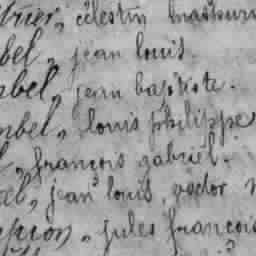 célestin
bel, jean louis.
bel, jean baptiste.
mbel, louis philippe
françois gabriel.
jean louis victor
jules françois